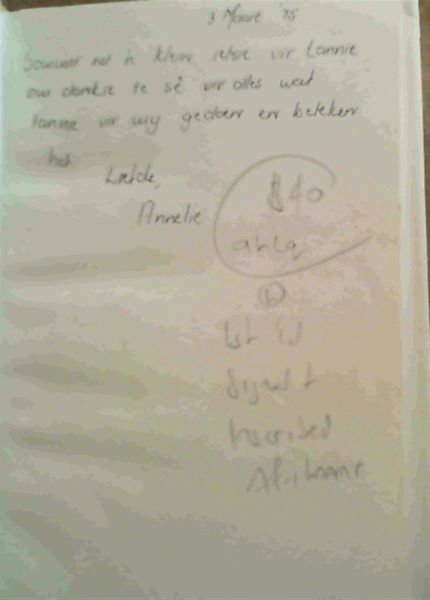 3 Maart '75
Sommer net 'n klein ietsie vir Tannie
om dankie te sê vir alles wat
Tannie vir my gedoen en beteken
het
Liefde,
Annelie
$40
ahlq
(b)
1st Ed
Signed +
Inscribed
Afrikaans